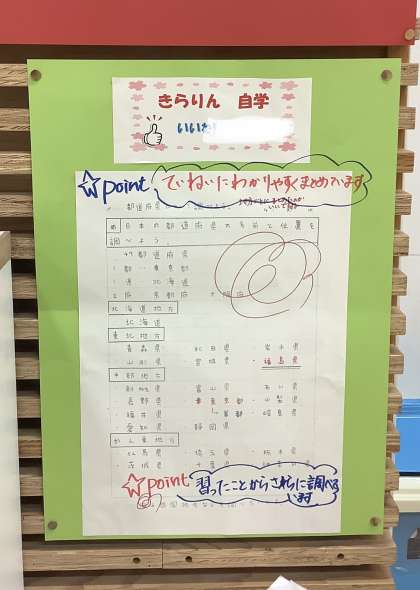 きらりん 自学
いいね
☆point ていねいにわかりやすくまとめています
め 日本の都道府県の名前と位置を
調べよう。
・47都道府県
・都 東京都
・道 北海道
2府 京都府 大阪府
北海道地方
・北海道
東北地方
・青森県 ・秋田県 ・岩手県
・山形県 ・宮城県 ・福島県
中部地方
・新潟県 ・富山県 ・石川県
・長野県 ・山梨県
・福井県 ・岐阜県
・愛知県 ・静岡県
かん東地方
・群馬県 ・埼玉県 ・栃木県
・茨城県 ・千葉県
☆point 習ったことからさらに調べて
います